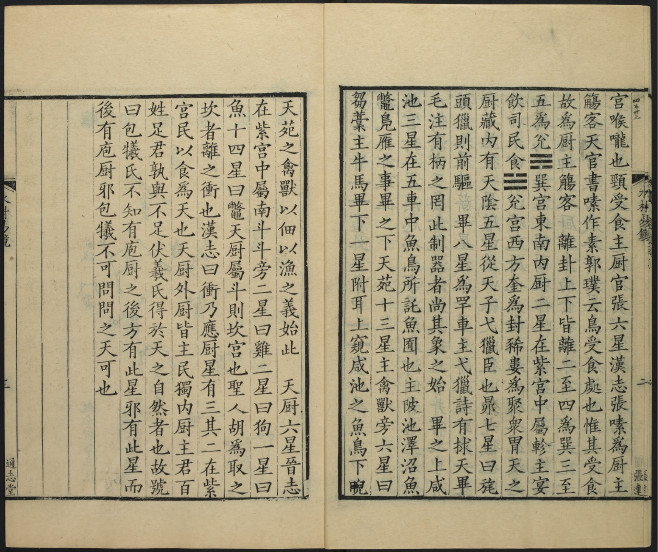 宫喉嚨也頸受食主厨官張六星漢志張嗉為厨主
觴客天官書嗉作素郭璞云鳥受食處也惟其受食
故為厨主觴客　離卦上下皆離二至四為巽三至
五為兊☱巽宫東南内厨二星在紫宫中屬軫主宴
飲司民食☱兊宫西方奎為封豨婁為聚衆胃天之
厨藏内有天陰五星從天子弋獵臣也昴七星曰旄
頭獵則前驅　畢八星為罕車主弋獵詩有捄天畢
毛注有柄之罔此制器者尚其象之始　畢之上咸
池三星在五車中魚鳥所託魚囿也主陂池澤沼魚
鼈鳬雁之事畢之下天苑十三星主禽獸旁六星曰
芻藁主牛馬畢下一星附耳上窺咸池之魚鳥下睨
天苑之禽獸以佃以漁之義始此　天厨六星晉志
在紫宫中屬南斗斗旁二星曰雞二星曰狗一星曰
魚十四星曰鼈天厨屬斗則坎宫也聖人胡為取之
坎者離之衝也漢志曰衝乃應厨星有三其二在紫
宫民以食為天也天厨外厨皆主民獨内厨主君百
姓足君孰與不足伏羲氏得於天之自然者也故號
曰包犧氏不知有庖厨之後方有此星邪有此星而
後有庖厨邪包犧不可問問之天可也
二
三
通志堂